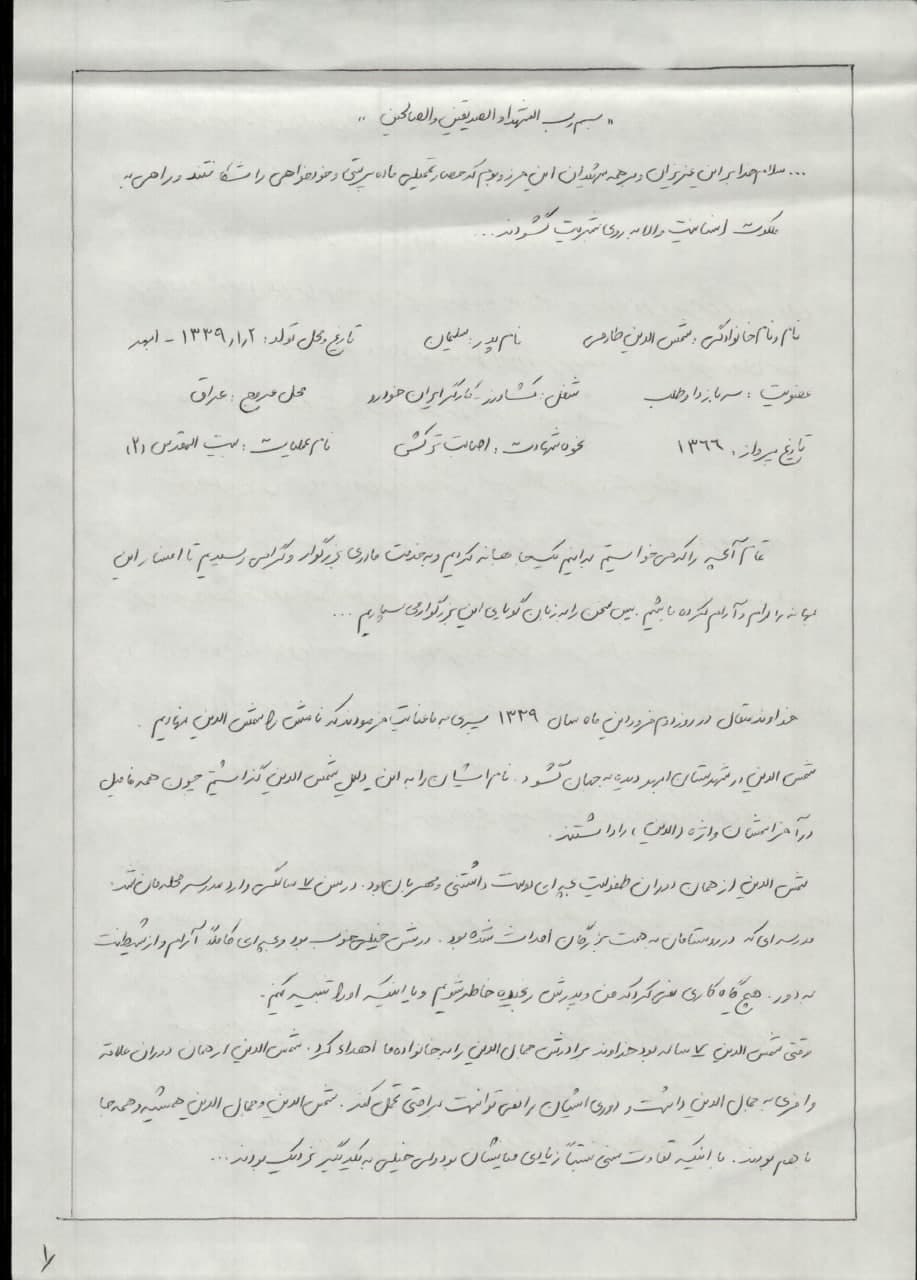 " بسم رب الشهداء والصدیقین والصالحین "
... سلام خدا بر این عزیزان و بر همه شهیدان این مرز و بوم که حصار تحمیلی ماده پرستی و خودخواهی را شکافتند و راهی به
ملکوت انسانیت والا به روی بشریت گشودند ...
نام و نام خانوادگی : شمس الدین طارمی نام پدر : سلیمان تاریخ و محل تولد : ۱۳۳۹/۱/۲ - ابهر
عضویت : سرباز داوطلب شغل : کشاورز - کارگر ایران خودرو محل عروج : عراق
تاریخ پرواز : ۱۳۶۶ نحوه شهادت : اصابت ترکش نام عملیات : بیت المقدس (۲)
تمام آنچه را که می خواستیم بدانیم یکجا بهانه کردیم و به خدمت مادری بزرگوار و گرامی رسیدیم تا این
بهانه را آرام کرده باشیم . پس سخن را به زبان گویای این بزرگوار می سپاریم ...
خداوند متعال در روز دوم فروردین ماه سال ۱۳۳۹ پسری به ما عنایت فرمودند که نامش را شمس الدین نهادیم .
شمس الدین در شهرستان ابهر دیده به جهان گشود . نام ایشان را به این دلیل شمس الدین گذاشتیم چون همه فامیل
در آخر اسمشان واژه (الدین) را داشتند .
شمس الدین از همان دوران طفولیت بچه ای دوست داشتنی و مهربان بود . در سن ۷ سالگی وارد مدرسه محله مان شد ؛
مدرسه ای که در روستامان به همت بزرگان احداث شده بود . درسش خیلی خوب بود و بچه ای کاملاً آرام و از شیطنت
به دور . هیچ گاه کاری نمی کرد که من و پدرش رنجیده خاطر شویم و یا اینکه او را تنبیه کنیم .
وقتی شمس الدین ۷ ساله بود خداوند برادرش جمال الدین را به خانواده ما اهداء کرد . شمس الدین از همان دوران علاقه
وافری به جمال الدین داشت و دوری ایشان را نمی توانست به راحتی تحمل کند . شمس الدین و جمال الدین همیشه و همه جا
با هم بودند . با اینکه تفاوت سنی نسبتاً زیادی میانشان بود ولی خیلی به یکدیگر نزدیک بودند ...
۱